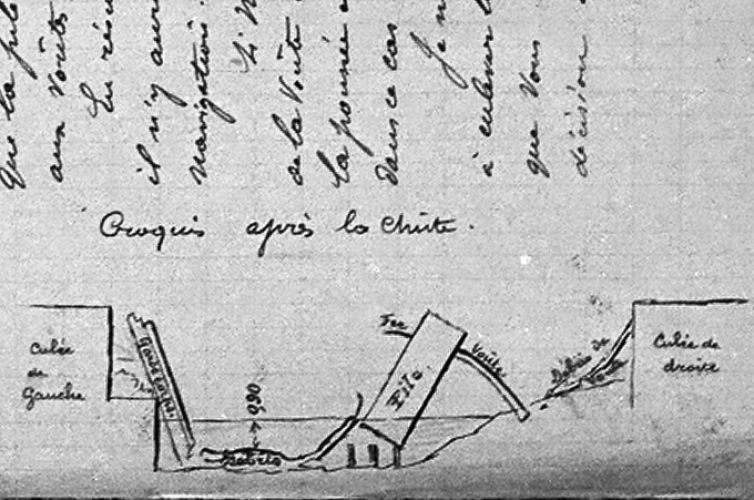 que la pile
aux voûtes
En résu
il n'y aura
navigation.
de la voûte
la poussée
dans ce cas
Je n
à enlever l
que Vous
décision
Croquis après la chute.
Culée
de
Gauche
Garde corps.
0,90
débris
Fer
Pile.
Voûte
Débris de
Voûte
Culée de
droite